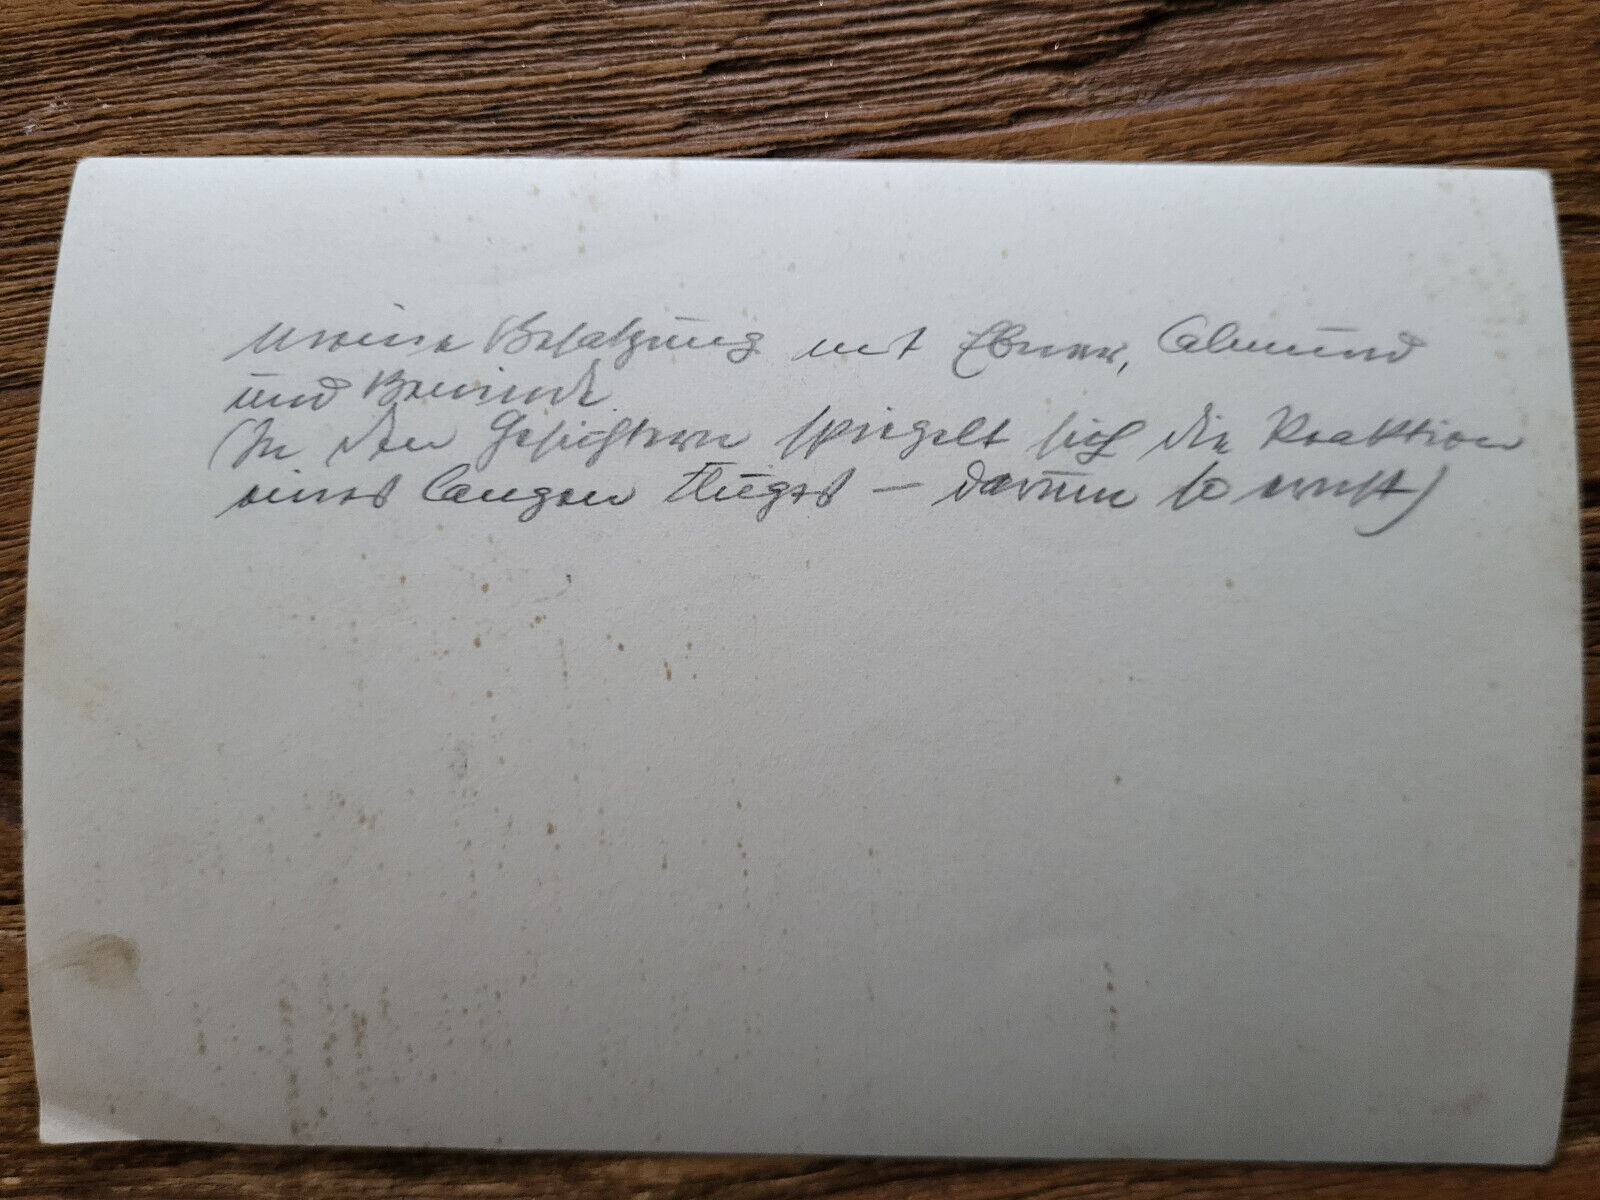 meine Besatzung mit Ebner,
und
(In den Gesichtern spiegelt sich die Reaktion
eines langen Fluges – darum so ernst)